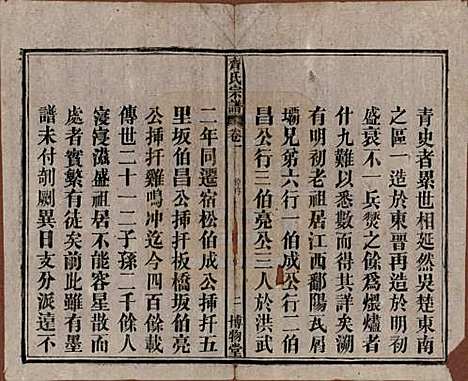 青史者累世相延然吳楚東南
之區一造於東晋再造於明初
盛衰不一兵燹之餘爲煨爐者
什九難以悉數而得其詳矣溯
明初老祖居江西鄱陽瓦屑
壩兄弟六行一伯成公行二伯
昌公行三伯亮公三人於洪武
齊氏宗譜
卷一
二
博物堂
二年同遷宿松伯成公插扦五
里坂伯昌公插扦板橋坂伯亮
公插扦雞鳴冲迄今四百餘載
傳世二十一二子孫二千餘人
寖寖滋盛祖居不能容星散而
處者實繁有徒矣前此雖有墨
譜未付剞劂異日支分派遠不